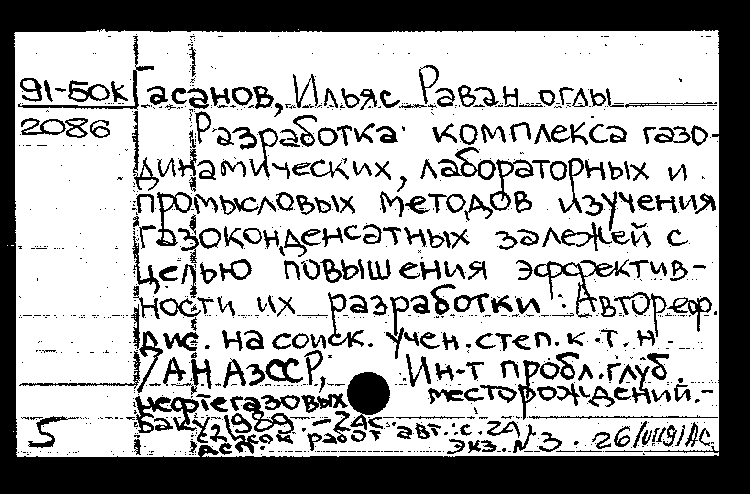 91-50к Гасанов, Ильяс Раван оглы
2086 Разработка комплекса газо-
динамических, лабораторных и
промысловых методов изучения
газоконденсатных залежей с
целью повышения эффектив-
ности их разработки : Автореф.
дис. на соиск. учен. степ. к.т.н.
/АН АзССР, Ин-т пробл. глуб.
нефтегазовых месторождений.-
Баку, 1989. - 24с.
Список работ авт.: с. 24
ДСП. экз. N 3. 26/
5